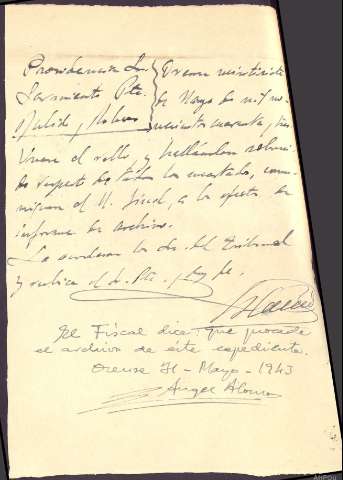 Providencia Sres
Sarmiento Pte.
Pulido, y Robres
Orense veintisiete
de Mayo de mil no-
vecientos cuarenta y tres
Unase al rollo, y
respecto de todos los encartados, comu-
níquese al M. Fiscal, a los efectos de
informe de archivo.
Lo acordaron los Sres. del Tribunal
y rubrica el Sr. Pte., doy fe.
El Fiscal dice: que procede
el archivo de éste expediente.
Orense 31 - Mayo - 1943
Angel Alonso